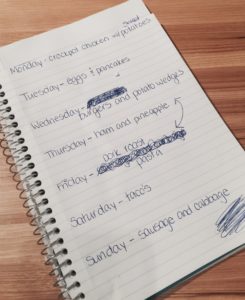 sweet
Monday - crockpot chicken w/ potatoes
Tuesday - eggs & pancakes
Wednesday -
burgers and potato wedges
Thursday - ham and pineapple
pork roast
Friday -
pasta
Saturday - tacos
Sunday - sausage and cabbage